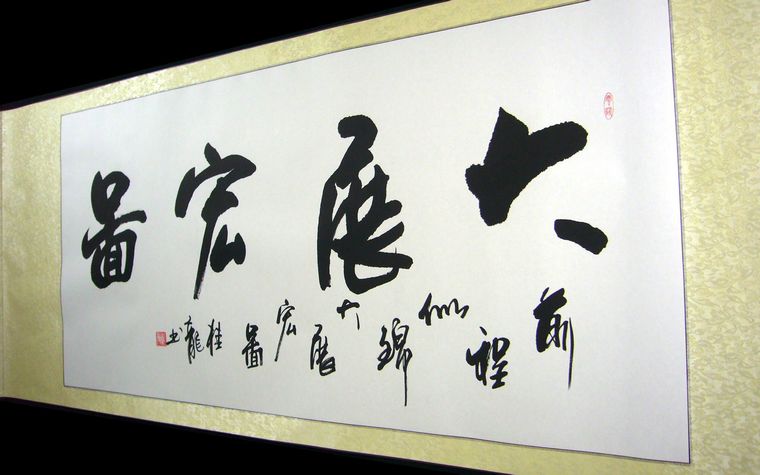 大展宏圖
前程似錦大展宏圖桂龍书